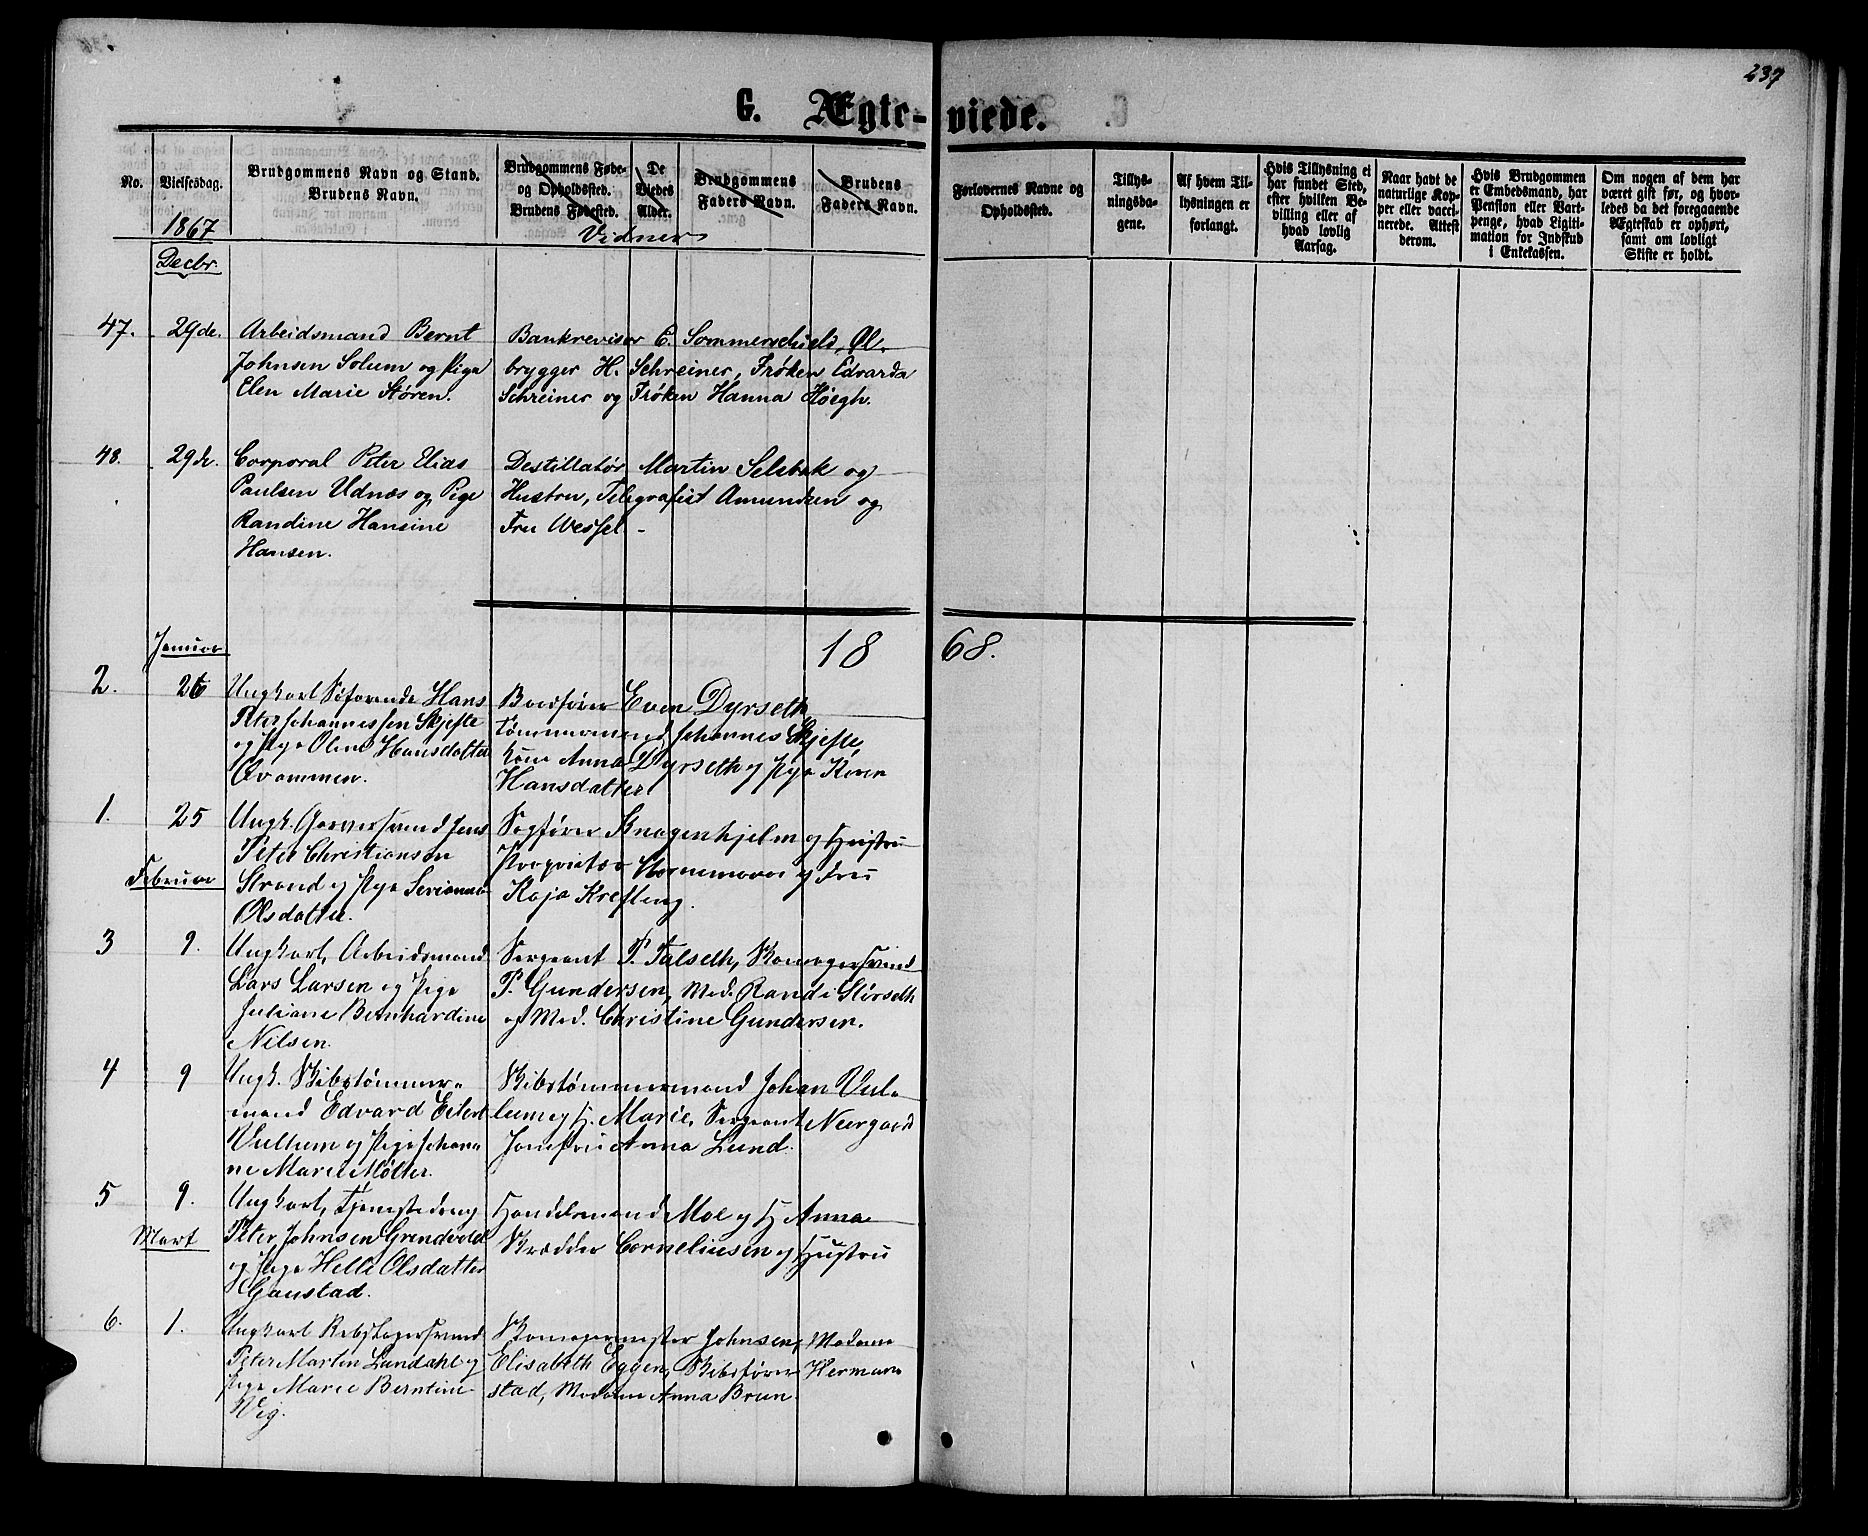 237
G. Ægte-viede.
No.
Vielsesdag.
Brudgommens Navn og Stand.
Brudens Navn.
Brudgommens Føde-
og Opholdssted.
Brudens Fødested.
De
Viedes
Alder.
Brudgommens
Faders Navn.
Brudens
Faders Navn.
Forlovernes Navne og
Opholdssted.
Tillys-
ningsda-
gene.
Af hvem Til-
lysningen er
forlangt.
Hvis Tillysning ei
har fundet Sted,
efter hvilken Be-
villing eller af
hvad lovlig
Aarsag.
Naar havt de
naturlige Kop-
per eller vacci-
nerede. Attest
derom.
Hvis Brudgommen
er Embedsmand, har
Pension eller Vart-
penge, hvad Ligiti-
mation for Indskud
i Enkekassen.
Om nogen af dem har
været gift før, og hvor-
ledes da det foregaaende
Ægteskab er ophørt,
samt om lovligt
Skifte er holdt.
1867
Vidner
Decbr
47. 29de. Arbeidsmand Bernt
Johnsen Solum og Pige
Elen Marie Støren.
Bankrevisor C. Sommerschield, Øl-
brygger H. Schreiner, Frøken Edvarda
Schreiner og Frøken Hanna Høegh.
48. 29de. Corporal Peter Elias
Paulsen Udnæs og Pige
Randine Hansine
Hansen.
Destillatør Martin Selsbak og
Hustru, Telegrafist Amundsen og
Fru Wessel -
Januar
1868.
2. 26 Ungkarl Søfarende Hans
Peter Johannessen Skjefte
og Pige Oline Hansdatter
Qvammen.
Bogfører Even Dyrseth
Tømmermand Johannes Skjefte,
Kone Anna Dyrseth og Pige Karen
Hansdatter
1. 25 Ungk. Garversvend Jens
Peter Christiansen
Strand og Pige
Olsdatter.
Sagfører Knagenhjelm og Hustru
Proprietær Hornemann og Fru
Kaja Krefting.
Februar
3 9. Ungkarl, Arbeidsmand
Lars Larsen og Pige
Juliane Bernhardine
Nilsen.
Sergeant P. Falseth, Skomagersvend
P. Gundersen, Mad. Randi Størseth
og Mad. Christine Gundersen.
4 9 Ungk. Skibstømmer-
mand Edvard Eilert
Vullum og Pige Johan-
ne Marie Møller.
Skibstømmermand Johan Vul-
lum og H. Marie, Sergeant Neergaard
Jomfru Anna Lund.
5 9. Ungkarl, Tjenestedreng
Peter Johnsen Grendvold
og Pige Helle Olsdatter
Gaustad.
Handelsmand Moe og H Anna
Skrædder Corneliusen og Hustru
Mart
6. 1. Ungkarl Rebslagersvend
Peter Martin Lundahl og
Pige Marie Berntine
Wig.
Skomagermester Johnsen, Madame
Elisabeth Eggen, Skibsfører Herman-
stad, Madame Anna Brun